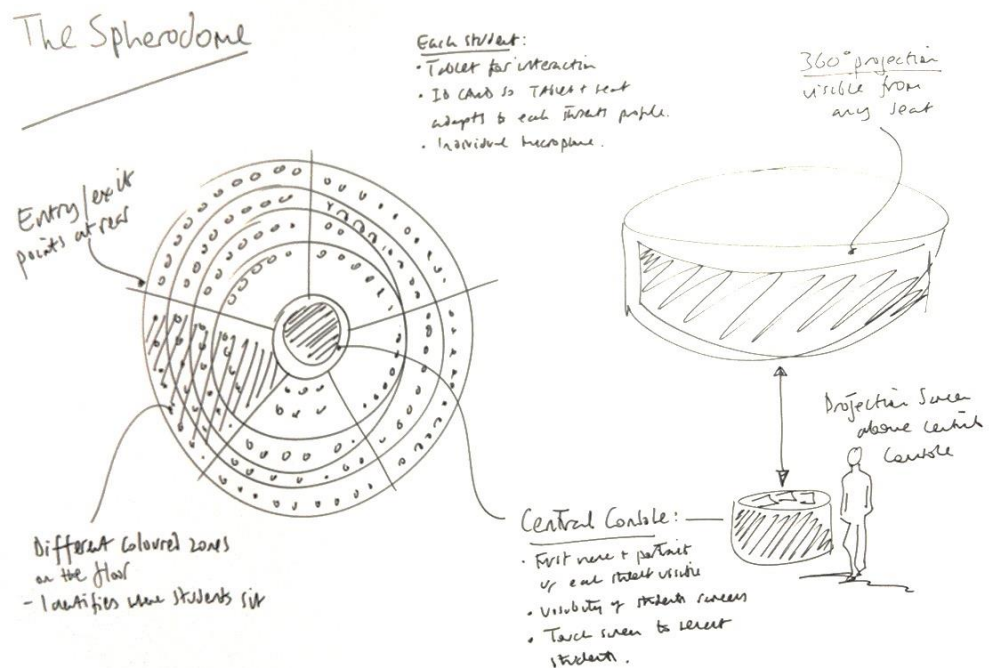 The Spherodome
Each student:
• Tablet for interaction
• ID card so Tablet + seat
adapts to each students profile.
• Individual microphone.
360° projection
visible from
any seat
Entry/exit
points at rear
Projection Screen
above central
console
Different coloured zones
on the floor
- Identifies where students sit
Central Console:
• First name + portrait
of each student visible
• Visibility of students screens
• Touch screen to select
students.